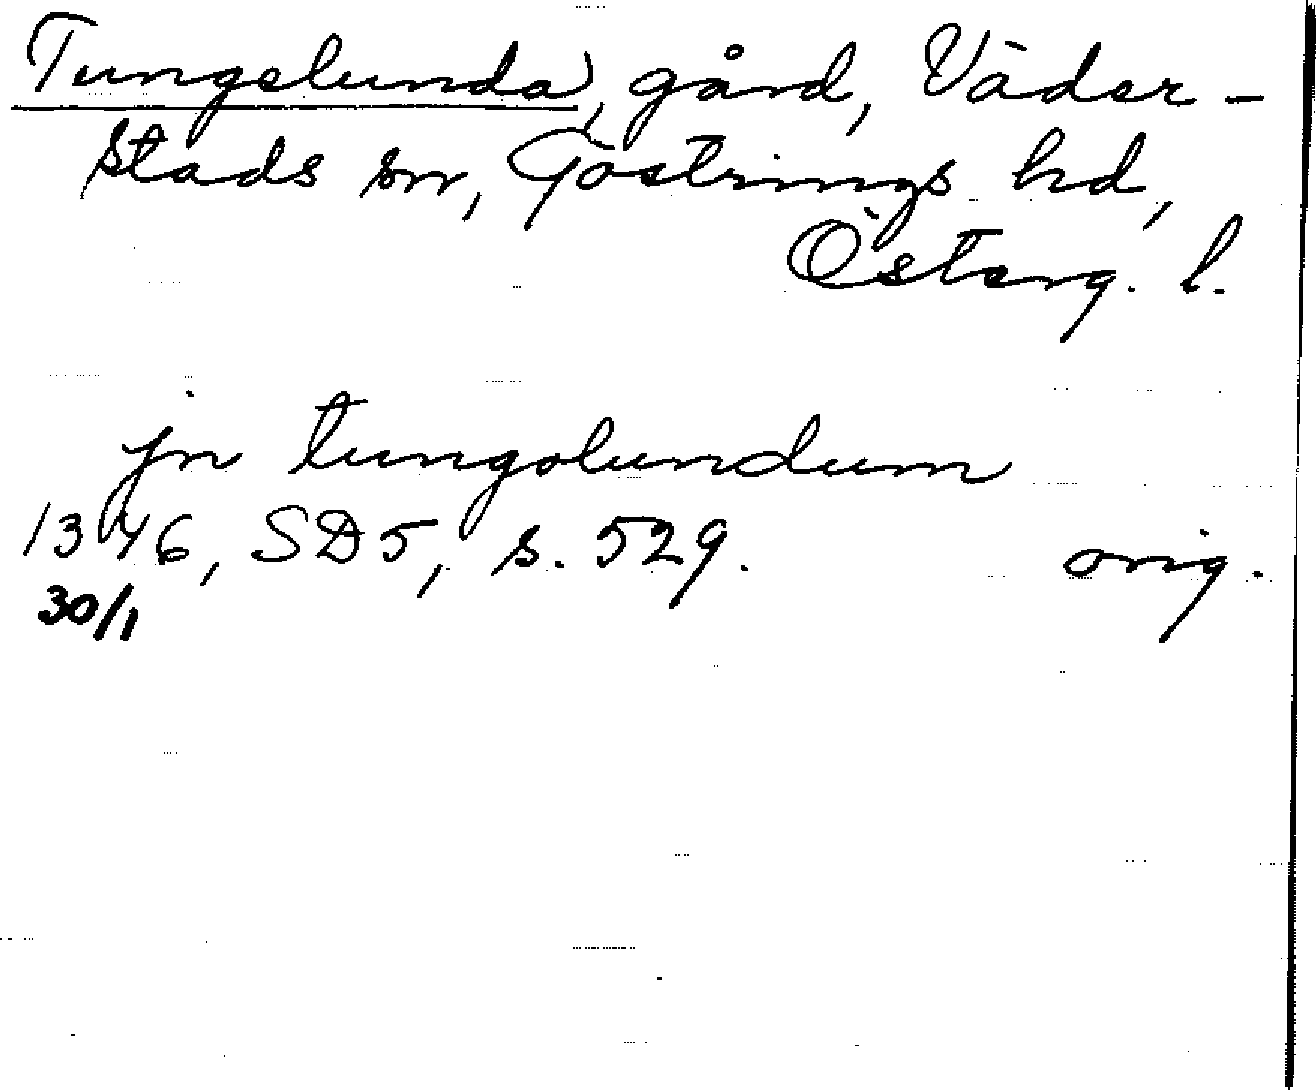 Tungelunda, gård, Väder-
stads sn, Göstrings hd,
Österg. l.
jn tungolundum
1346, SD5, s. 529. orig.
30/1